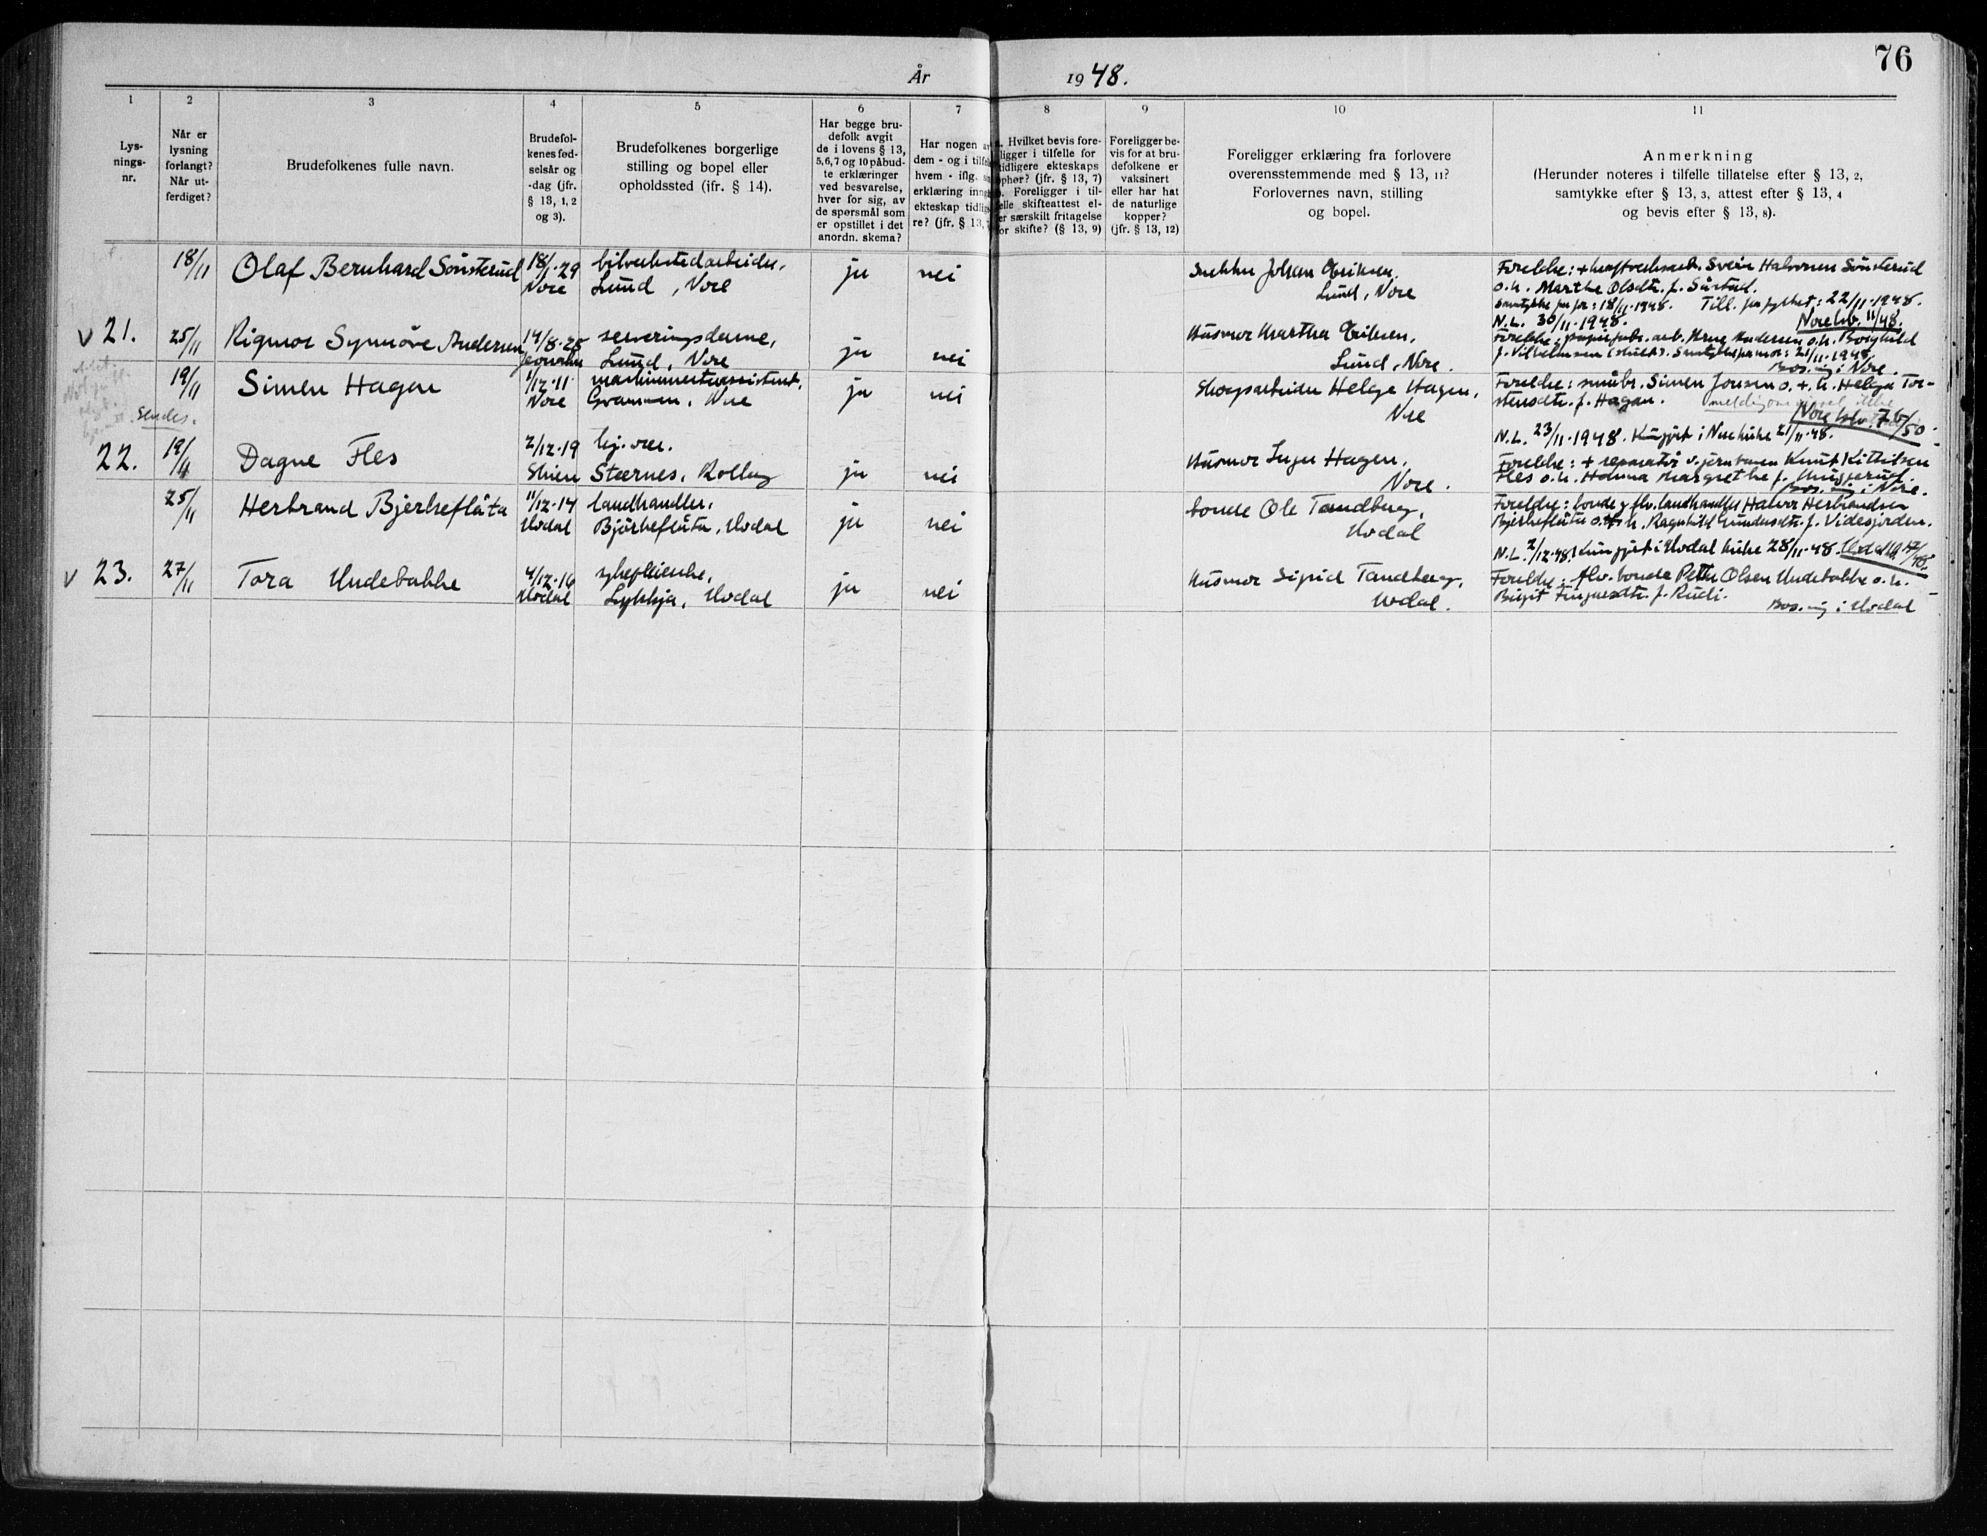 76
År 1948.
1 2 3 4 5 6 7 8 9 10 11
Lys-
nings-
nr.
Når er
lysning
forlangt?
Når ut-
ferdiget?
Brudefolkenes fulle navn.
Brudefol-
kenes fød-
selsår og
-dag (jfr.
§ 13, 1, 2
og 3).
Brudefolkenes borgerlige
stilling og bopel eller
opholdssted (jfr. § 14).
Har begge bru-
defolk avgit
de i lovens § 13,
5, 6, 7 og 10 påbud-
te erklæringer
ved besvarelse,
hver for sig, av
de spørsmål som
er opstillet i det
anordn. skema?
Har nogen
dem - og i
hvem - iflg.
erklæring
ekteskap
re? (jfr. § 13,
Hvilket bevis fore-
ligger i tilfelle for
tidligere ekteskaps
ophør? (jfr. § 13, 7)
Foreligger i til-
felle skifteattest el-
er særskilt fritagelse
for skifte? (§ 13, 9)
Foreligger be-
vis for at bru-
defolkene er
vaksinert
eller har hat
de naturlige
kopper?
(jfr. § 13, 12)
Foreligger erklæring fra forlovere
overensstemmende med § 13, 11?
Forlovernes navn, stilling
og bopel.
Anmerkning
(Herunder noteres i tilfelle tillatelse efter § 13, 2,
samtykke efter § 13, 3, attest efter § 13, 4
og bevis efter § 13, 8).
18/11 Olaf Bernhard Sönsterud 18/1-29 bilverkstedarbeider, ja nei Johan Eriksen, Foreldre: + Svein Halvorsen Sönsterud
Nore Lund, Nore Lund, Nore o.h. Marthe Olsdtr. f.
18/11-1948. Till. fra fylket: 22/11-1948.
N.L. 30/11-1948. Nore
v 21. 25/11 Rigmor Synnöve Andersen 14/8-25 serveringsdame, ja nei Husmor Martha Eriksen, Foreldre: Arne Andersen o.h. Borghild
Lund, Nore Lund, Nore. f. Vilhelmsen
Bos. sig i Nore.
19/11 Simen Hagen 1/12-11 maskinmesterassistent, ja nei Skogsarbeider Helge Hagen, Foreldre: småbr. Simen Jonsen o. + h. Helga Tor-
Nore Nore Nore stensdtr. f. Hagan.
Sendes.
N.L. 23/11-1948. Kunngjort i Nore kirke 21/11-48.
22. 19/11 Dagne Fles 2/12-19 ja nei Husmor Hagen, Foreldre: + reparatör v. jernbanen Knut Kittilsen
Skien Stærnes, Rollag Nore. Fles o.h. Hanna Margrethe f.
Bos. sig i Nore.
25/11 Herbrand Bjerkeflåta 11/12-14 landhandler, ja nei bonde Ole Tandberg, Foreldre: bonde og fhv. landhandler Halvor Herbrandsen
Uvdal Björkeflåta, Uvdal Uvdal Björkeflåta o. h. Ragnhild Gundersdtr. f. Videsjorden.
N.L. 2/12-48. Kunngjort i Uvdal kirke 28/11-48.
v 23. 27/11 Tora Undebakke 4/12-16 sykepleierske, ja nei Husmor Sigrid Tandberg, Foreldre: fhv. bonde Peter Olsen Undebakke o.h.
Uvdal Lykkja, Uvdal Uvdal. Birgit f. Rudi.
Bos. sig i Uvdal